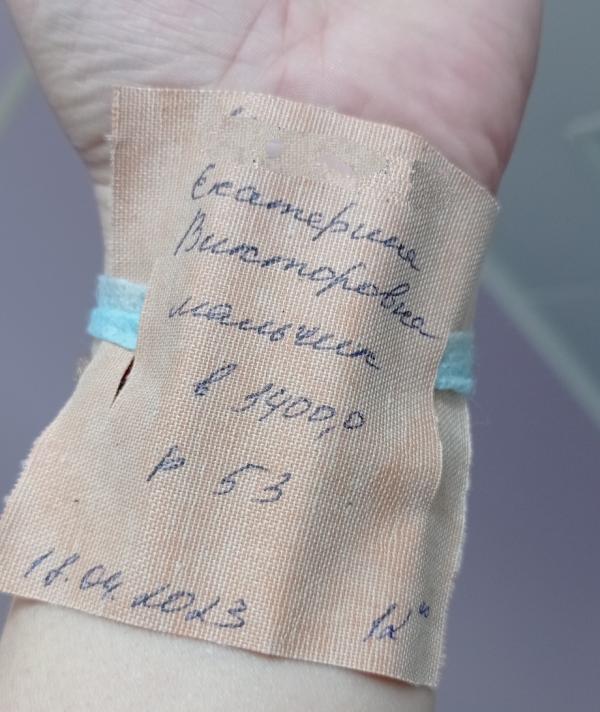 Екатерина
Викторовна
мальчик
в 3400,0
р 53
18.04.2023 12ч